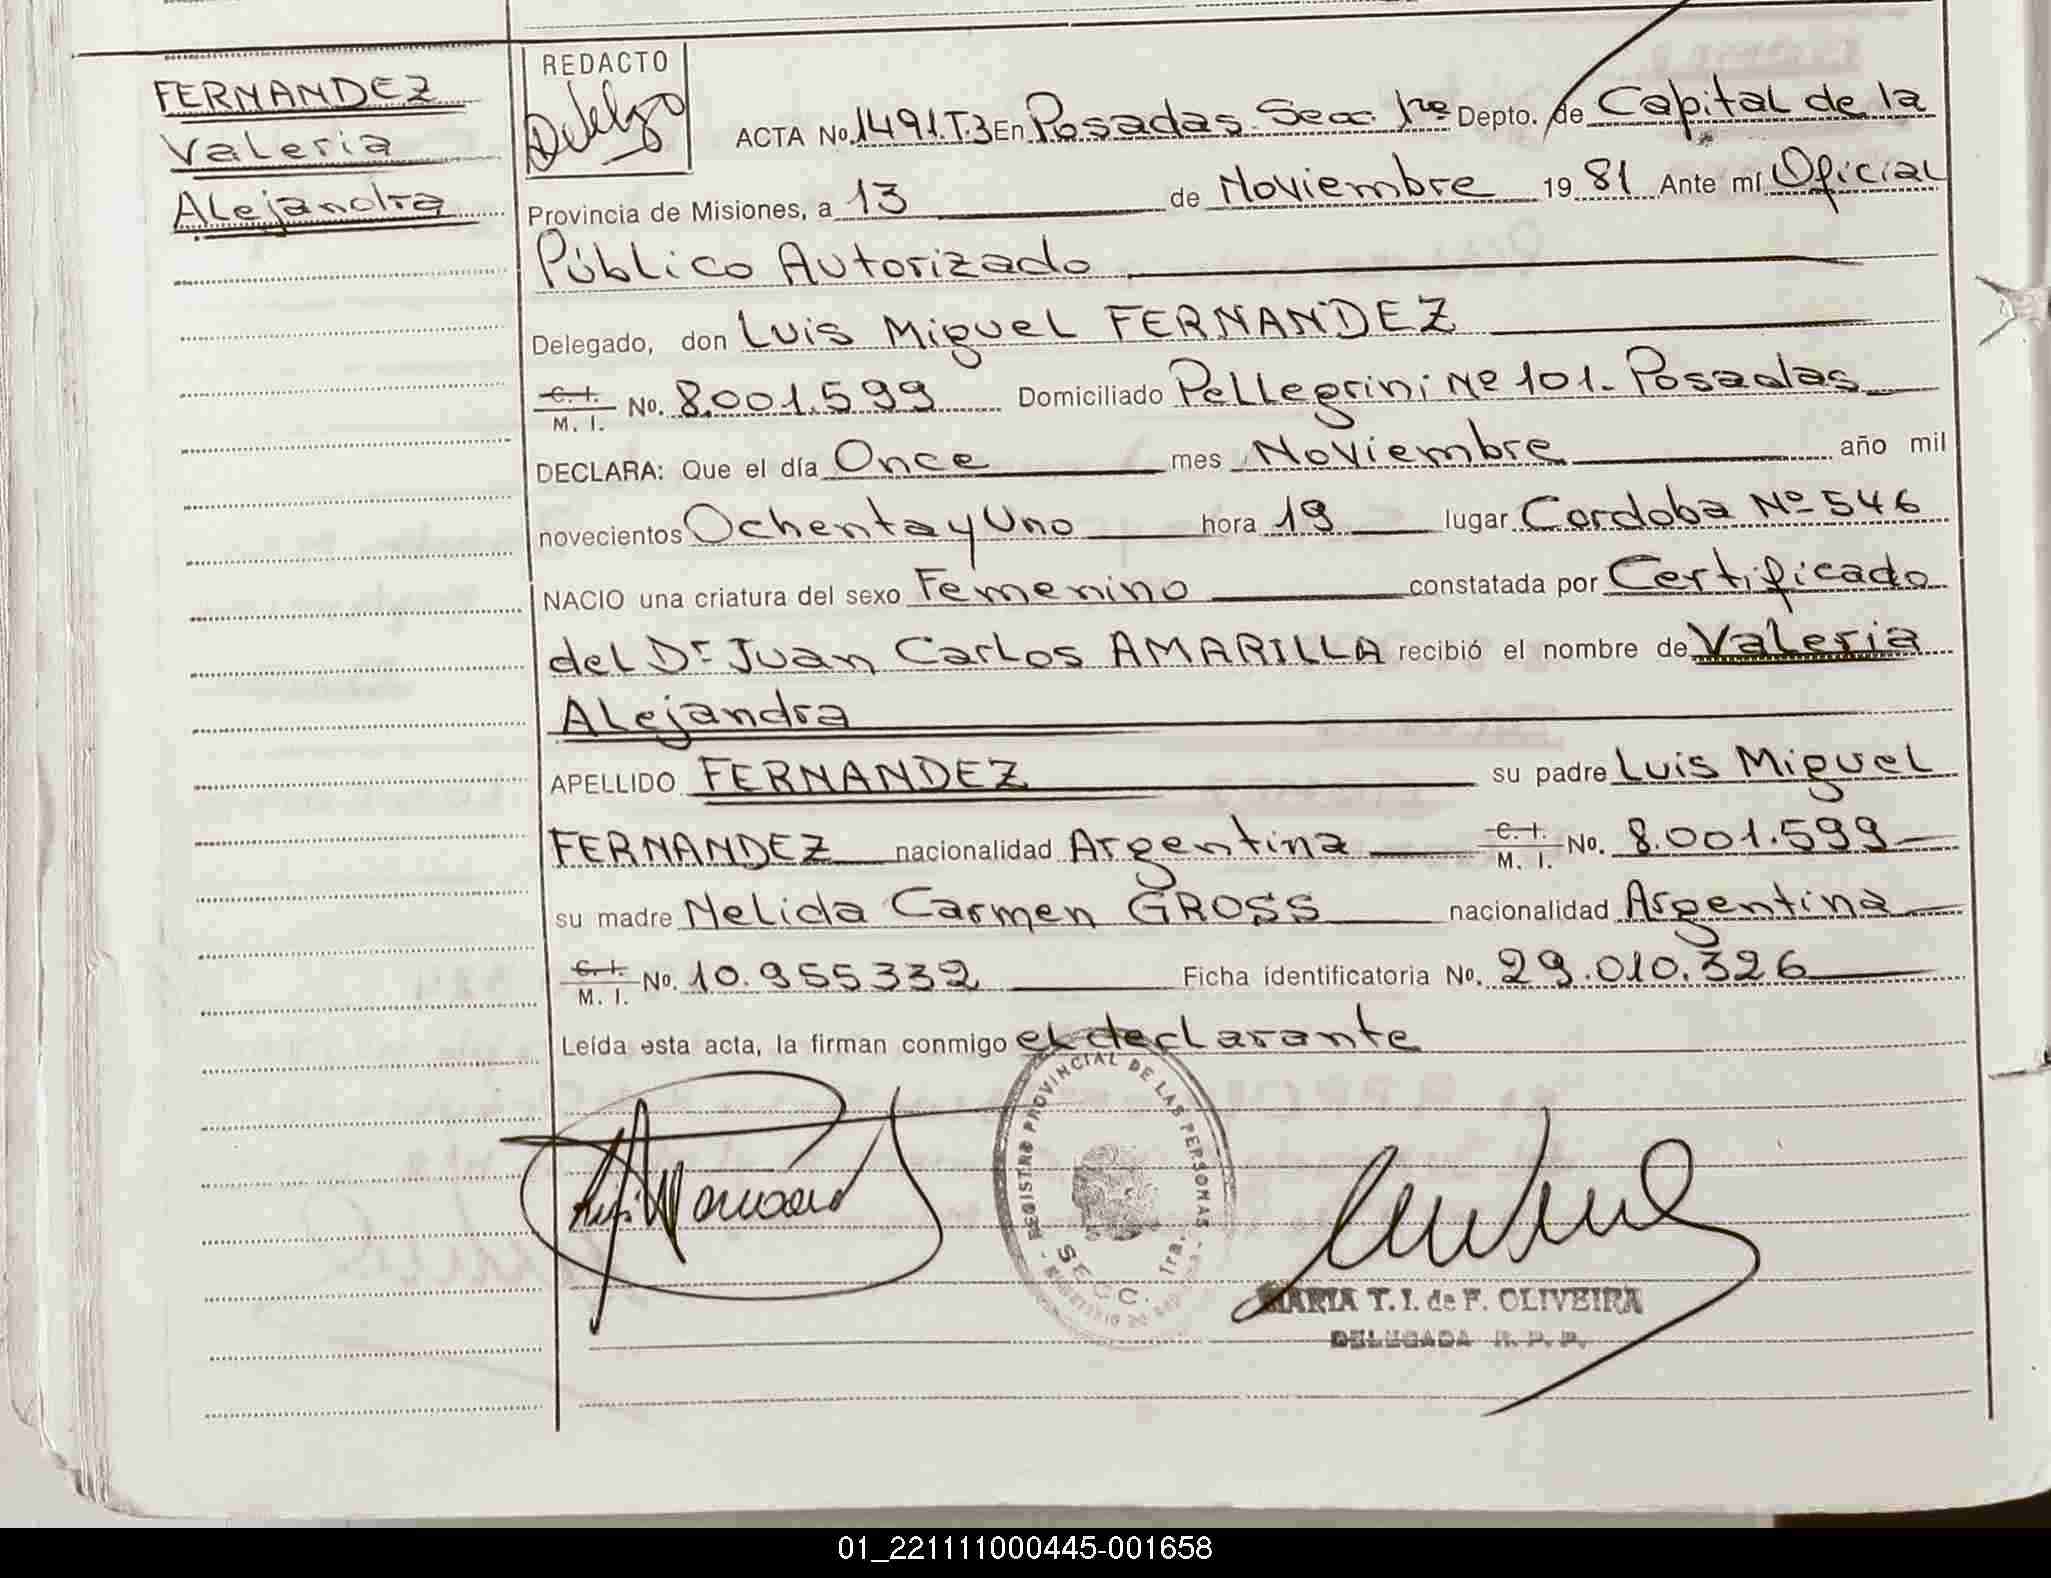 FERNANDEZ
Valeria
Alejandra
REDACTO
ACTA No. 1491.T.3 En Posadas Secc. 1ra Depto. de Capital de la
Provincia de Misiones, a 13 de Noviembre 19 81 Ante mí Oficial
Público Autorizado
Delegado, don Luis Miguel FERNANDEZ
C. I.
M. I. No. 8.001.599 Domiciliado Pellegrini Nº 101. Posadas
DECLARA: Que el día Once mes Noviembre año mil
novecientos Ochenta y Uno hora 19 lugar Cordoba Nº 546
NACIO una criatura del sexo Femenino constatada por Certificado
del Dr Juan Carlos AMARILLA recibió el nombre de Valeria
Alejandra
APELLIDO FERNANDEZ su padre Luis Miguel
FERNANDEZ nacionalidad Argentina C. I. M. I. No. 8.001.599
su madre Nelida Carmen GROSS nacionalidad Argentina
C. I.
M. I. No. 10.955332 Ficha identificatoria No. 29.010.326
Leída esta acta, la firman conmigo el declarante
REGISTRO PROVINCIAL DE LAS PERSONAS
SECC. 1ra.
MARIA T. I. de F. OLIVEIRA
DELEGADA R. P. P.
01_221111000445-001658